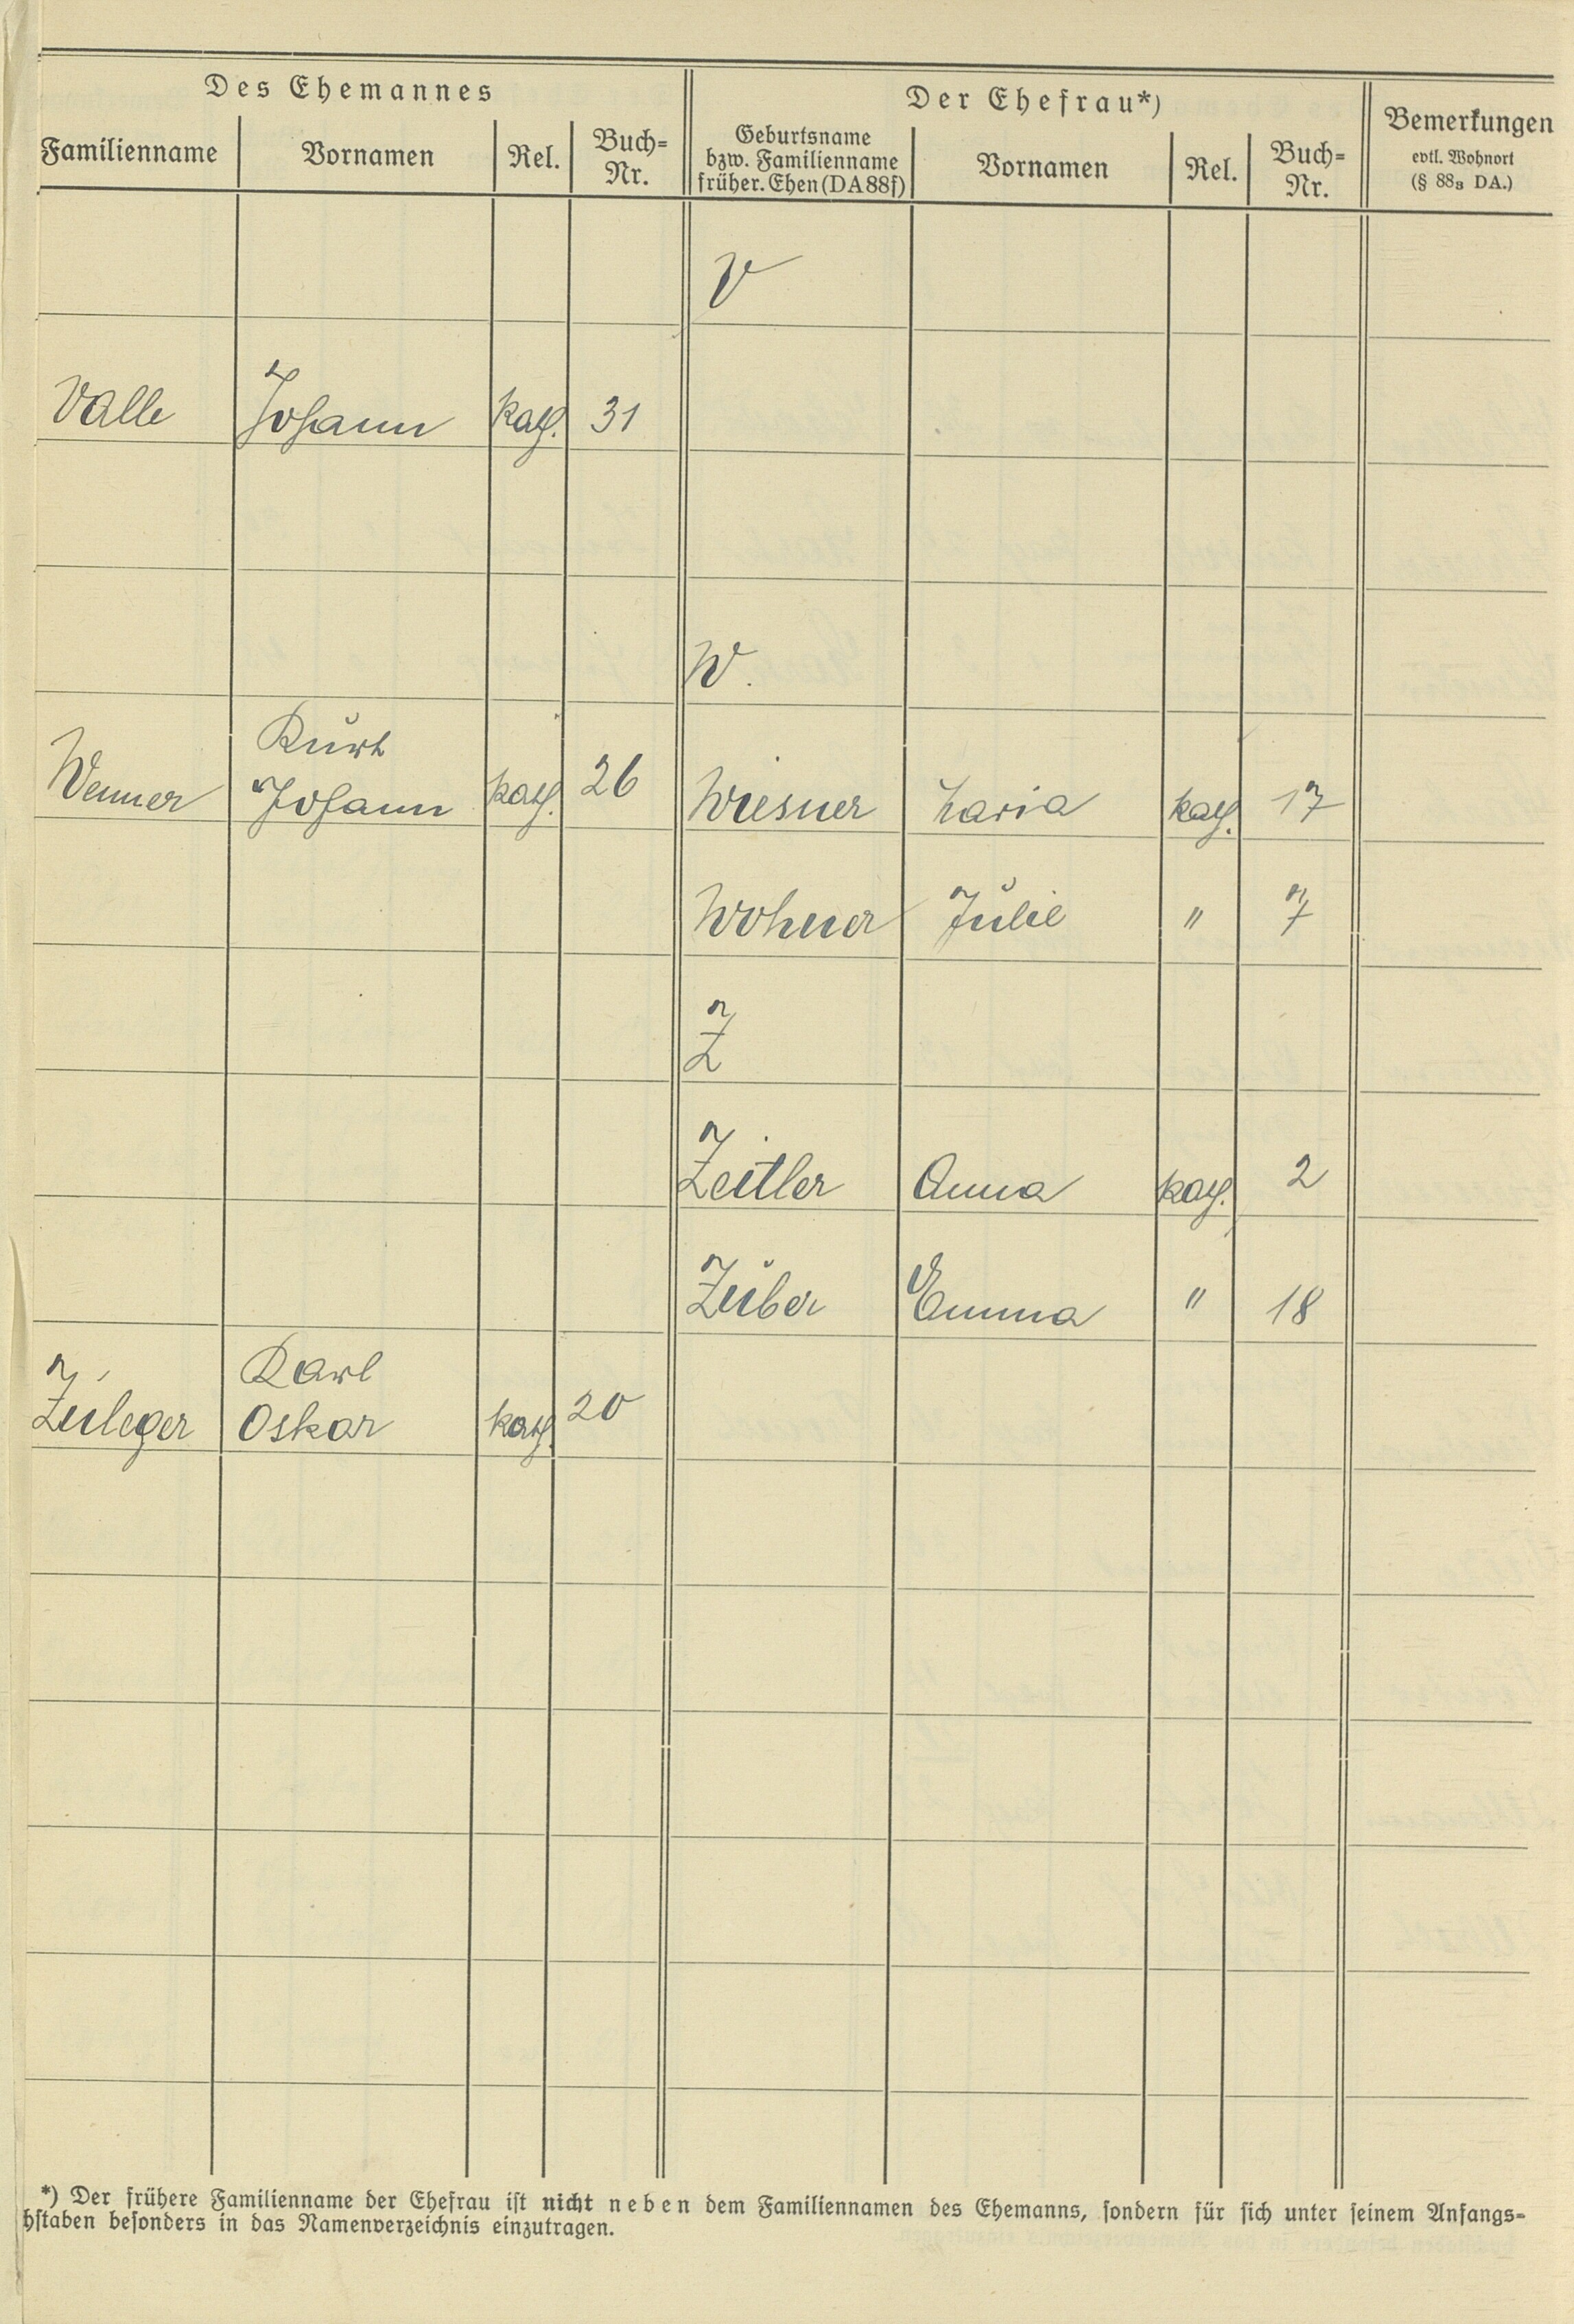 Des Ehemannes
Der Ehefrau*)
Bemerkungen
evtl. Wohnort
(§ 88₈ DA.)
Familienname
Vornamen
Rel.
Buch=
Nr.
Geburtsname
bzw. Familienname
früher. Ehen (DA 88f)
Vornamen
Rel.
Buch=
Nr.
V
Valle Johann kath. 31
W.
Kurt
Wenner Johann kath. 26 Wiesner Maria kath. 17
Wohner Julie " 7
Z
Zeitler Anna kath. 2
Zuber Emma " 18
Karl
Zuleger Oskar kath. 20
*) Der frühere Familienname der Ehefrau ist nicht neben dem Familiennamen des Ehemanns, sondern für sich unter seinem Anfangs=
hstaben besonders in das Namenverzeichnis einzutragen.